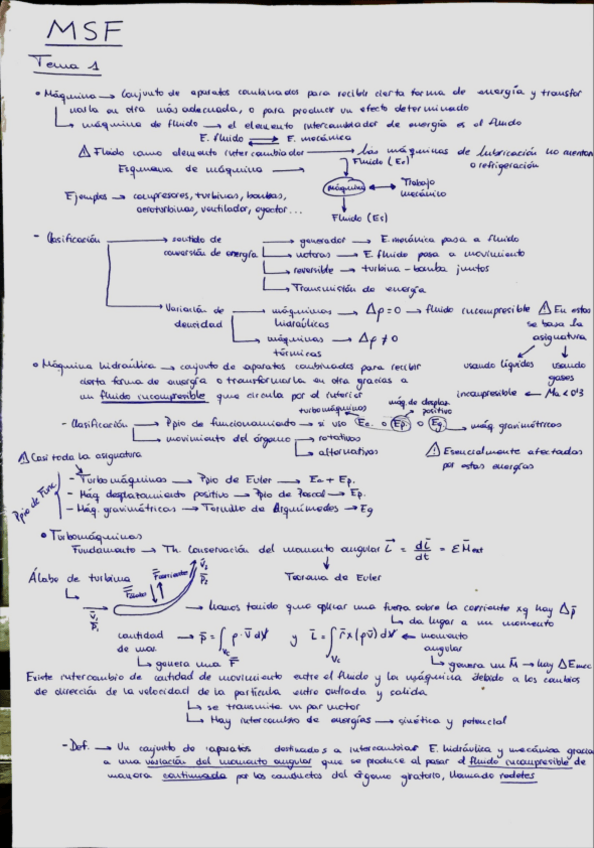 MSF
Tema 1
• Máquina → Conjunto de aparatos combinados para recibir cierta forma de energía y transfor
marla en otra más adecuada, o para producir un efecto determinado
↳ máquina de fluido → el elemento intercambiador de energía es el fluido
E. fluido ⇄ E. mecánica
⚠ Fluido como elemento intercambiador → las máquinas de lubricación no cuentan
o refrigeración
Esquema de máquina → Fluido (Ee)
máquina ↔ Trabajo
mecánico
Fluido (Es)
Ejemplos → compresores, turbinas, bombas,
aeroturbinas, ventilador, eyector...
- Clasificación → sentido de → generador → E. mecánica pasa a fluido
conversión de energía → motoras → E fluido pasa a movimiento
→ reversible → turbina - bomba juntos
→ Transmisión de energía
→ Variación de → máquinas → Δρ = 0 → fluido incompresible ⚠ En estas
densidad hidráulicas se basa la
asignatura
→ máquinas → Δρ ≠ 0
térmicas
usando líquidos usando
gases
incompresible ← Ma < 0'3
• Máquina hidráulica → conjunto de aparatos combinados para recibir
cierta forma de energía o transformarla en otra gracias a
un fluido incompresible que circula por el interior
turbomáquinas máq. de desplaz.
positivo
- Clasificación → Ppio de funcionamiento → si uso Ec o Ep o Eg → máq gravimétricas
→ movimiento del órgano → rotativos
→ alternativos
⚠ Esencialmente afectadas
por estas energías
⚠ Casi toda la asignatura
Ppio de Func
- Turbomáquinas → Ppio de Euler → Ec + Ep.
- Máq desplazamiento positivo → Ppio de Pascal → Ep.
- Máq. gravimétricas → Tornillo de Arquímedes → Eg
• Turbomáquinas
Fundamento → Th. Conservación del momento angular L = dL/dt = Σ M ext
Teorema de Euler
Álabe de turbina
F corriente
F álabe
V₁
P₁
V₂
P₂
→ hemos tenido que aplicar una fuerza sobre la corriente xq hay Δp
↳ da lugar a un momento
cantidad → p = ∫ ρ·v dV y L = ∫ r x (ρv) dV ← momento
de mov. Vc Vc angular
↳ genera una F ↳ genera un M → hay ΔE mec
Existe intercambio de cantidad de movimiento entre el fluido y la máquina debido a los cambios
de dirección de la velocidad de la partícula entre entrada y salida.
↳ se transmite un par motor
↳ Hay intercambio de energías → cinética y potencial
- Def. → Un conjunto de aparatos destinados a intercambiar E. hidráulica y mecánica gracias
a una variación del momento angular que se produce al pasar el fluido incompresible de
manera continuada por los conductos del órgano giratorio, llamado rodetes